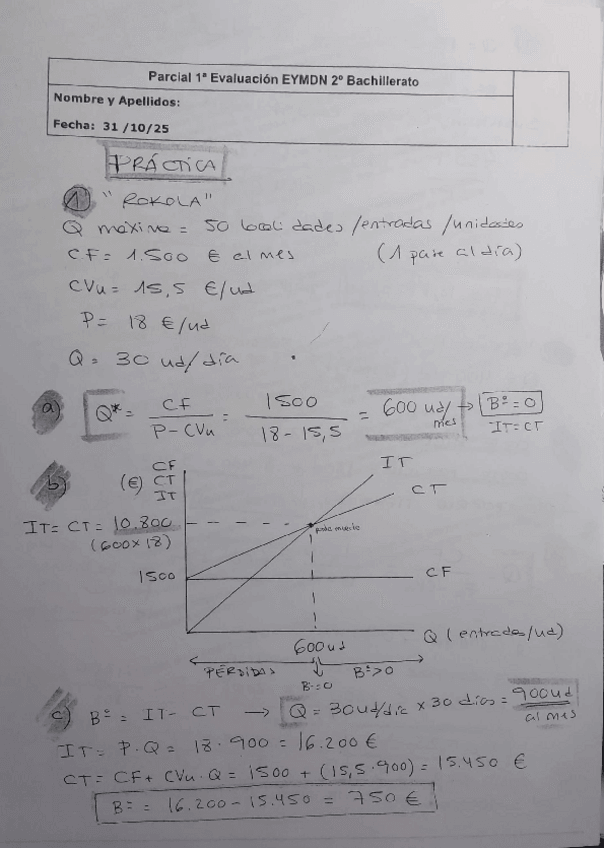 Parcial 1ª Evaluación EYMDN 2º Bachillerato
Nombre y Apellidos:
Fecha: 31 /10/25
PRÁCTICA
1 "ROKOLA"
Q máxima = 50 localidades /entradas /unidades
CF = 1.500 € al mes (1 pase al día)
CVu = 15,5 €/ud
P = 18 €/ud
Q = 30 ud/día
a) Q* = CF / P - CVu = 1500 / 18 - 15,5 = 600 ud/mes → Bº = 0
IT = CT
b) (€) CF CT IT
IT
CT
IT = CT = 10.800
(600 x 18)
punto muerto
1500
CF
Q (entradas/ud)
600 ud
PÉRDIDAS
B = 0
Bº > 0
c) Bº = IT - CT → Q = 30 ud/día x 30 días = 900 ud al mes
IT = P · Q = 18 · 900 = 16.200 €
CT = CF + CVu · Q = 1500 + (15,5 · 900) = 15.450 €
Bº = 16.200 - 15.450 = 750 €